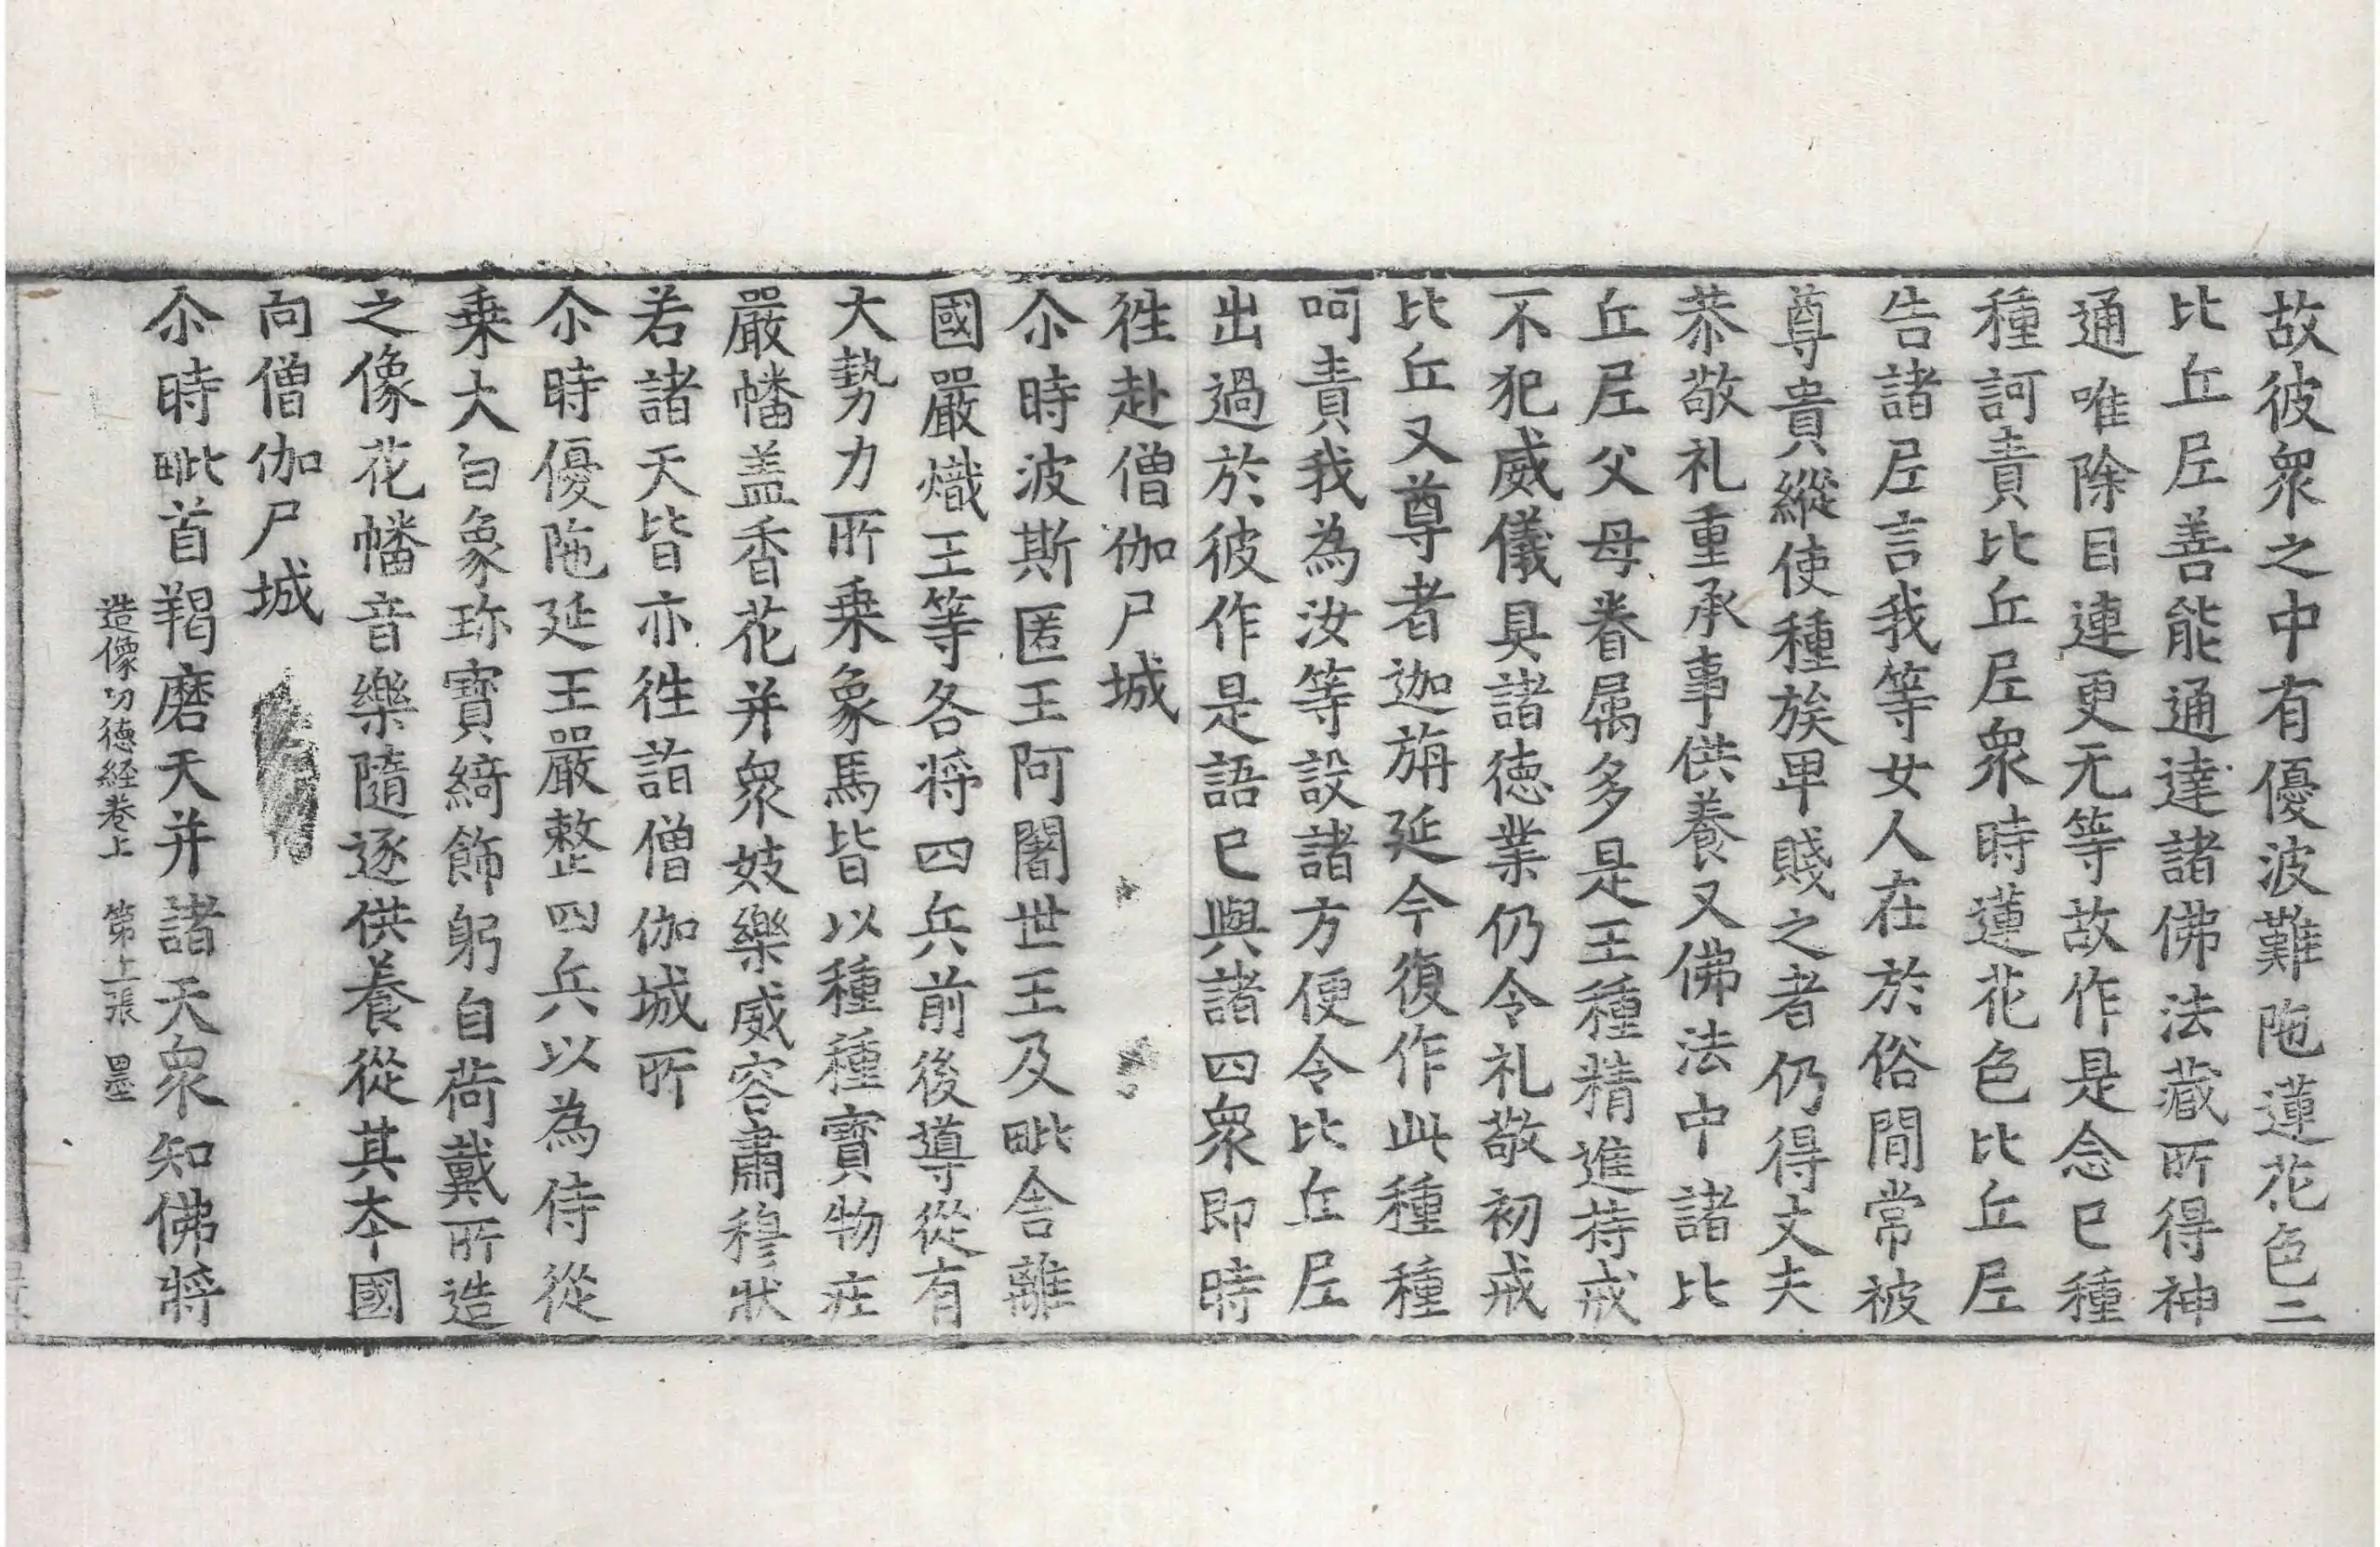 故彼衆之中有優波難陁蓮花色二
比丘尼善能通達諸佛法藏所得神
通唯除目連更无等故作是念已種
種訶責比丘尼衆時蓮花色比丘尼
告諸尼言我等女人在於俗閒常被
尊貴縱使種族卑賤之者仍得丈夫
恭敬礼重承事供養又佛法中諸比
丘尼父母眷属多是王種精進持戒
不犯威儀具諸德業仍令礼敬初戒
比丘又尊者迦旃延今復作此種種
呵責我為汝等設諸方便令比丘尼
出過於彼作是語已與諸四衆即時
徃赴僧伽尸城
尒時波斯匿王阿闍世王及毗舍離
國嚴熾王等各將四兵前後導從有
大勢力所乗象馬皆以種種寶物莊
嚴幡盖香花并衆妓樂威容肅穆狀
若諸天皆亦徃詣僧伽城所
尒時優陁延王嚴整四兵以為侍從
乗大白象珎寶綺飾躬自荷戴所造
之像花幡音樂隨逐供養從其夲國
向僧伽尸城
尒時毗首羯磨天并諸天衆知佛將
造像功德経卷上 第上張 墨